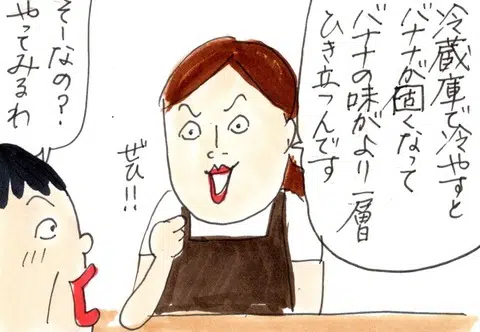 冷蔵庫で冷やすと
バナナが固くなって
バナナの味がより一層
ひき立つんです
ぜひ!!
そーなの?
やってみるわ